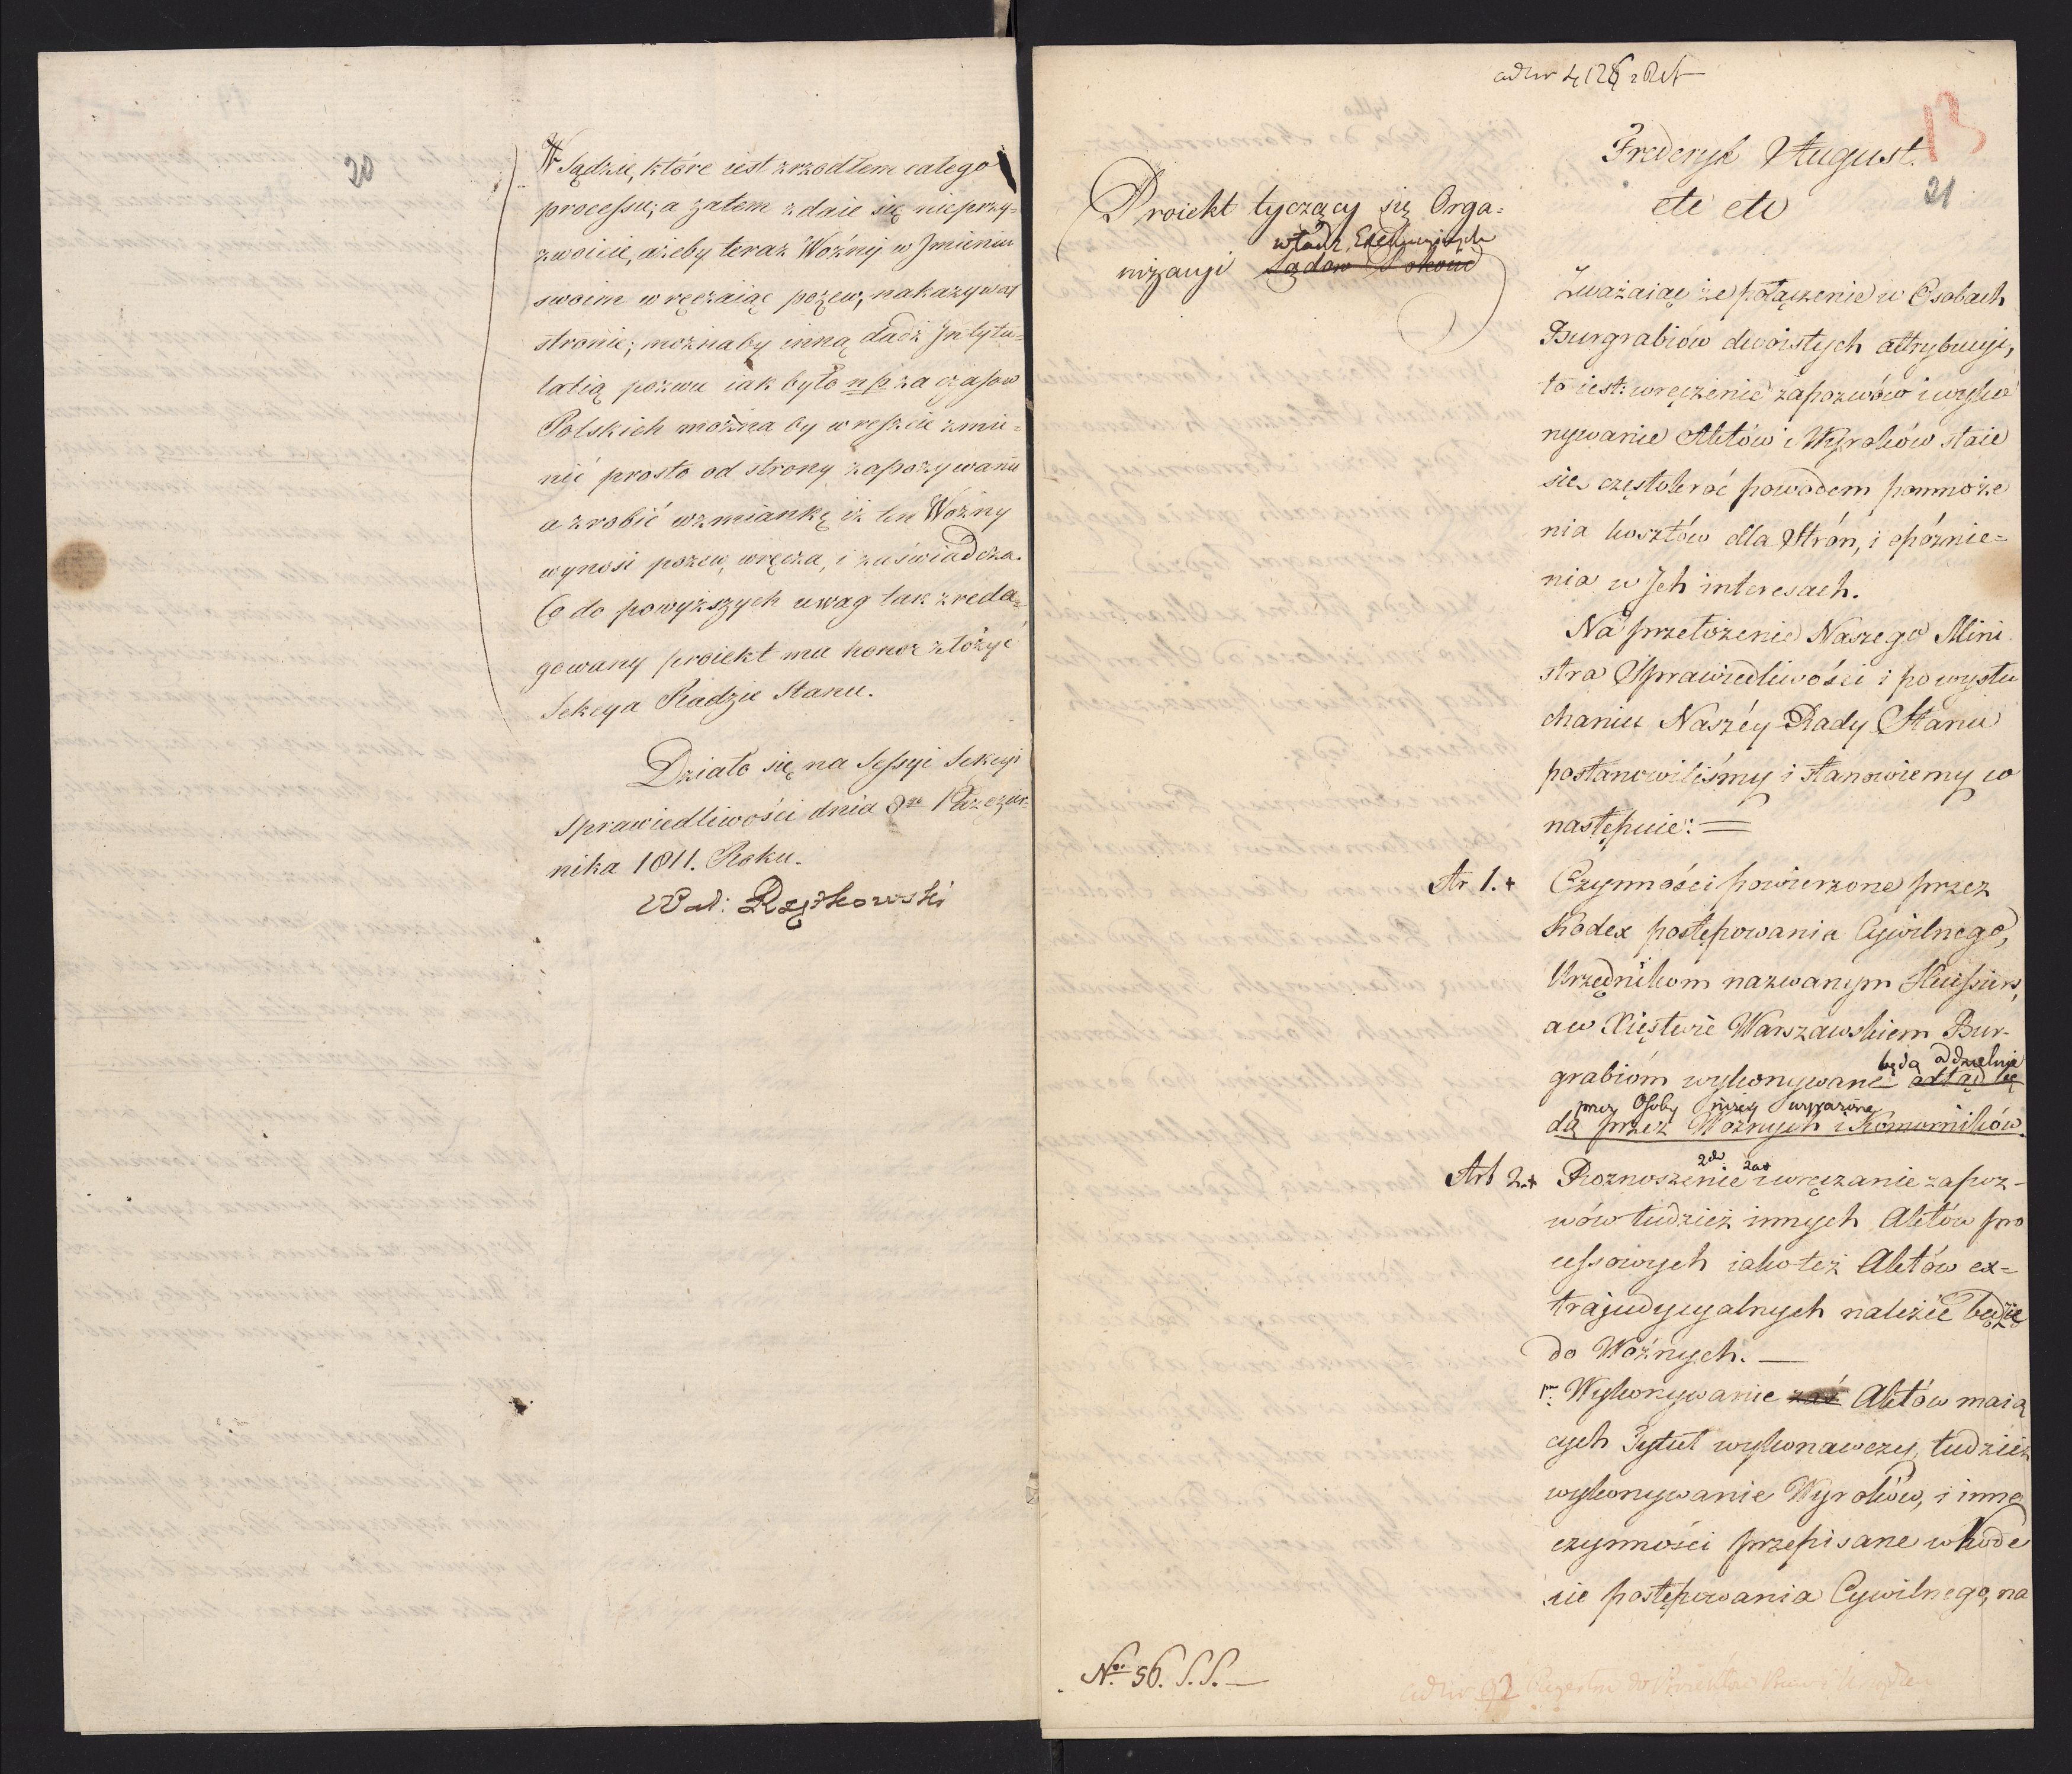 20
W Sądzie, które iest zrzodłem całego
processu; a zatem zdaie się nieprzy=
zwoicie, ażeby teraz Woźny w Jmieniu
swoim wręczaiąc pozew, nakazywał
stronie; możnaby inną dadź Jntytu=
lacią pozwu iak było np za czasow
Polskich można by wreszcie zmie=
nić prosto od strony zapozywania
a zrobić wzmiankę iż ten Woźny
wynosi pozew, wręcza, i zaświadcza.
Co do powyższych uwag tak zreda=
gowany proiekt ma honor złożyć
Sekcya Radzie Stanu.
Działo się na Sessyi Sekcyi
Sprawiedliwości dnia 8go Paździer-
nika 1811. Roku.
Wal:
ad Nr 4126
13
21
Fryderyk August.
etc etc
Proiekt tyczący się Orga=
władz Exekucyinych
nizacyi Sądow Pokoiu
Zważaiąc że połączenie w Osobach
Burgrabiów dwoistych attrybucyi,
to iest: wręczenie zapozwów i wyko
nywanie Aktów i Wyroków staie
sie częstokroć powodem pomnoże
nia kosztów dla Strón, i opóźnie=
nia w Jch interesach.
Na przełożenie Naszego Mini
stra Sprawiedliwości i po wysłu
chaniu Naszéy Rady Stanu
postanowiliśmy i stanowiemy co
następuie: =
Ar 1. + Czynności powierzone przez
Kodex postępowania Cywilnego,
Urzędnikom nazwanym Huissiers,
a w Xięstwie Warszawskiem Bur-
będą oddzielnie
grabióm wykonywane odtąd bę
przez Osoby niżey wyrażone
dą przez Woźnych i Komorników.
Art 2. + Roznoszenie 2do zaś i wręczanie zapoz-
wów tudzież innych Aktów pro
cessowych iako też Aktów ex=
trajudycyalnych należéć będzie
do Woźnych. —
1mo Wykonywanie zaś Aktów maią
cych Tytuł wykonawczy, tudzież
wykonywanie Wyroków, i inne
czynności przepisane w Kode
xie postępowania Cywilnego, na
No. 56. S.S. —
ad Nr 92